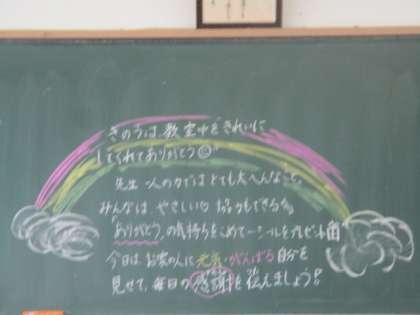 きのうは、教室中をきれいに
してくれてありがとう
先生一人の力ではとても大へんなこと。
みんなは、やさしい心 協力もできる
ありがとうの気持ちをこめてシールをプレゼント
今日は、お家の人に元気・がんばる自分を
見せて、毎日の感謝を伝えましょう!